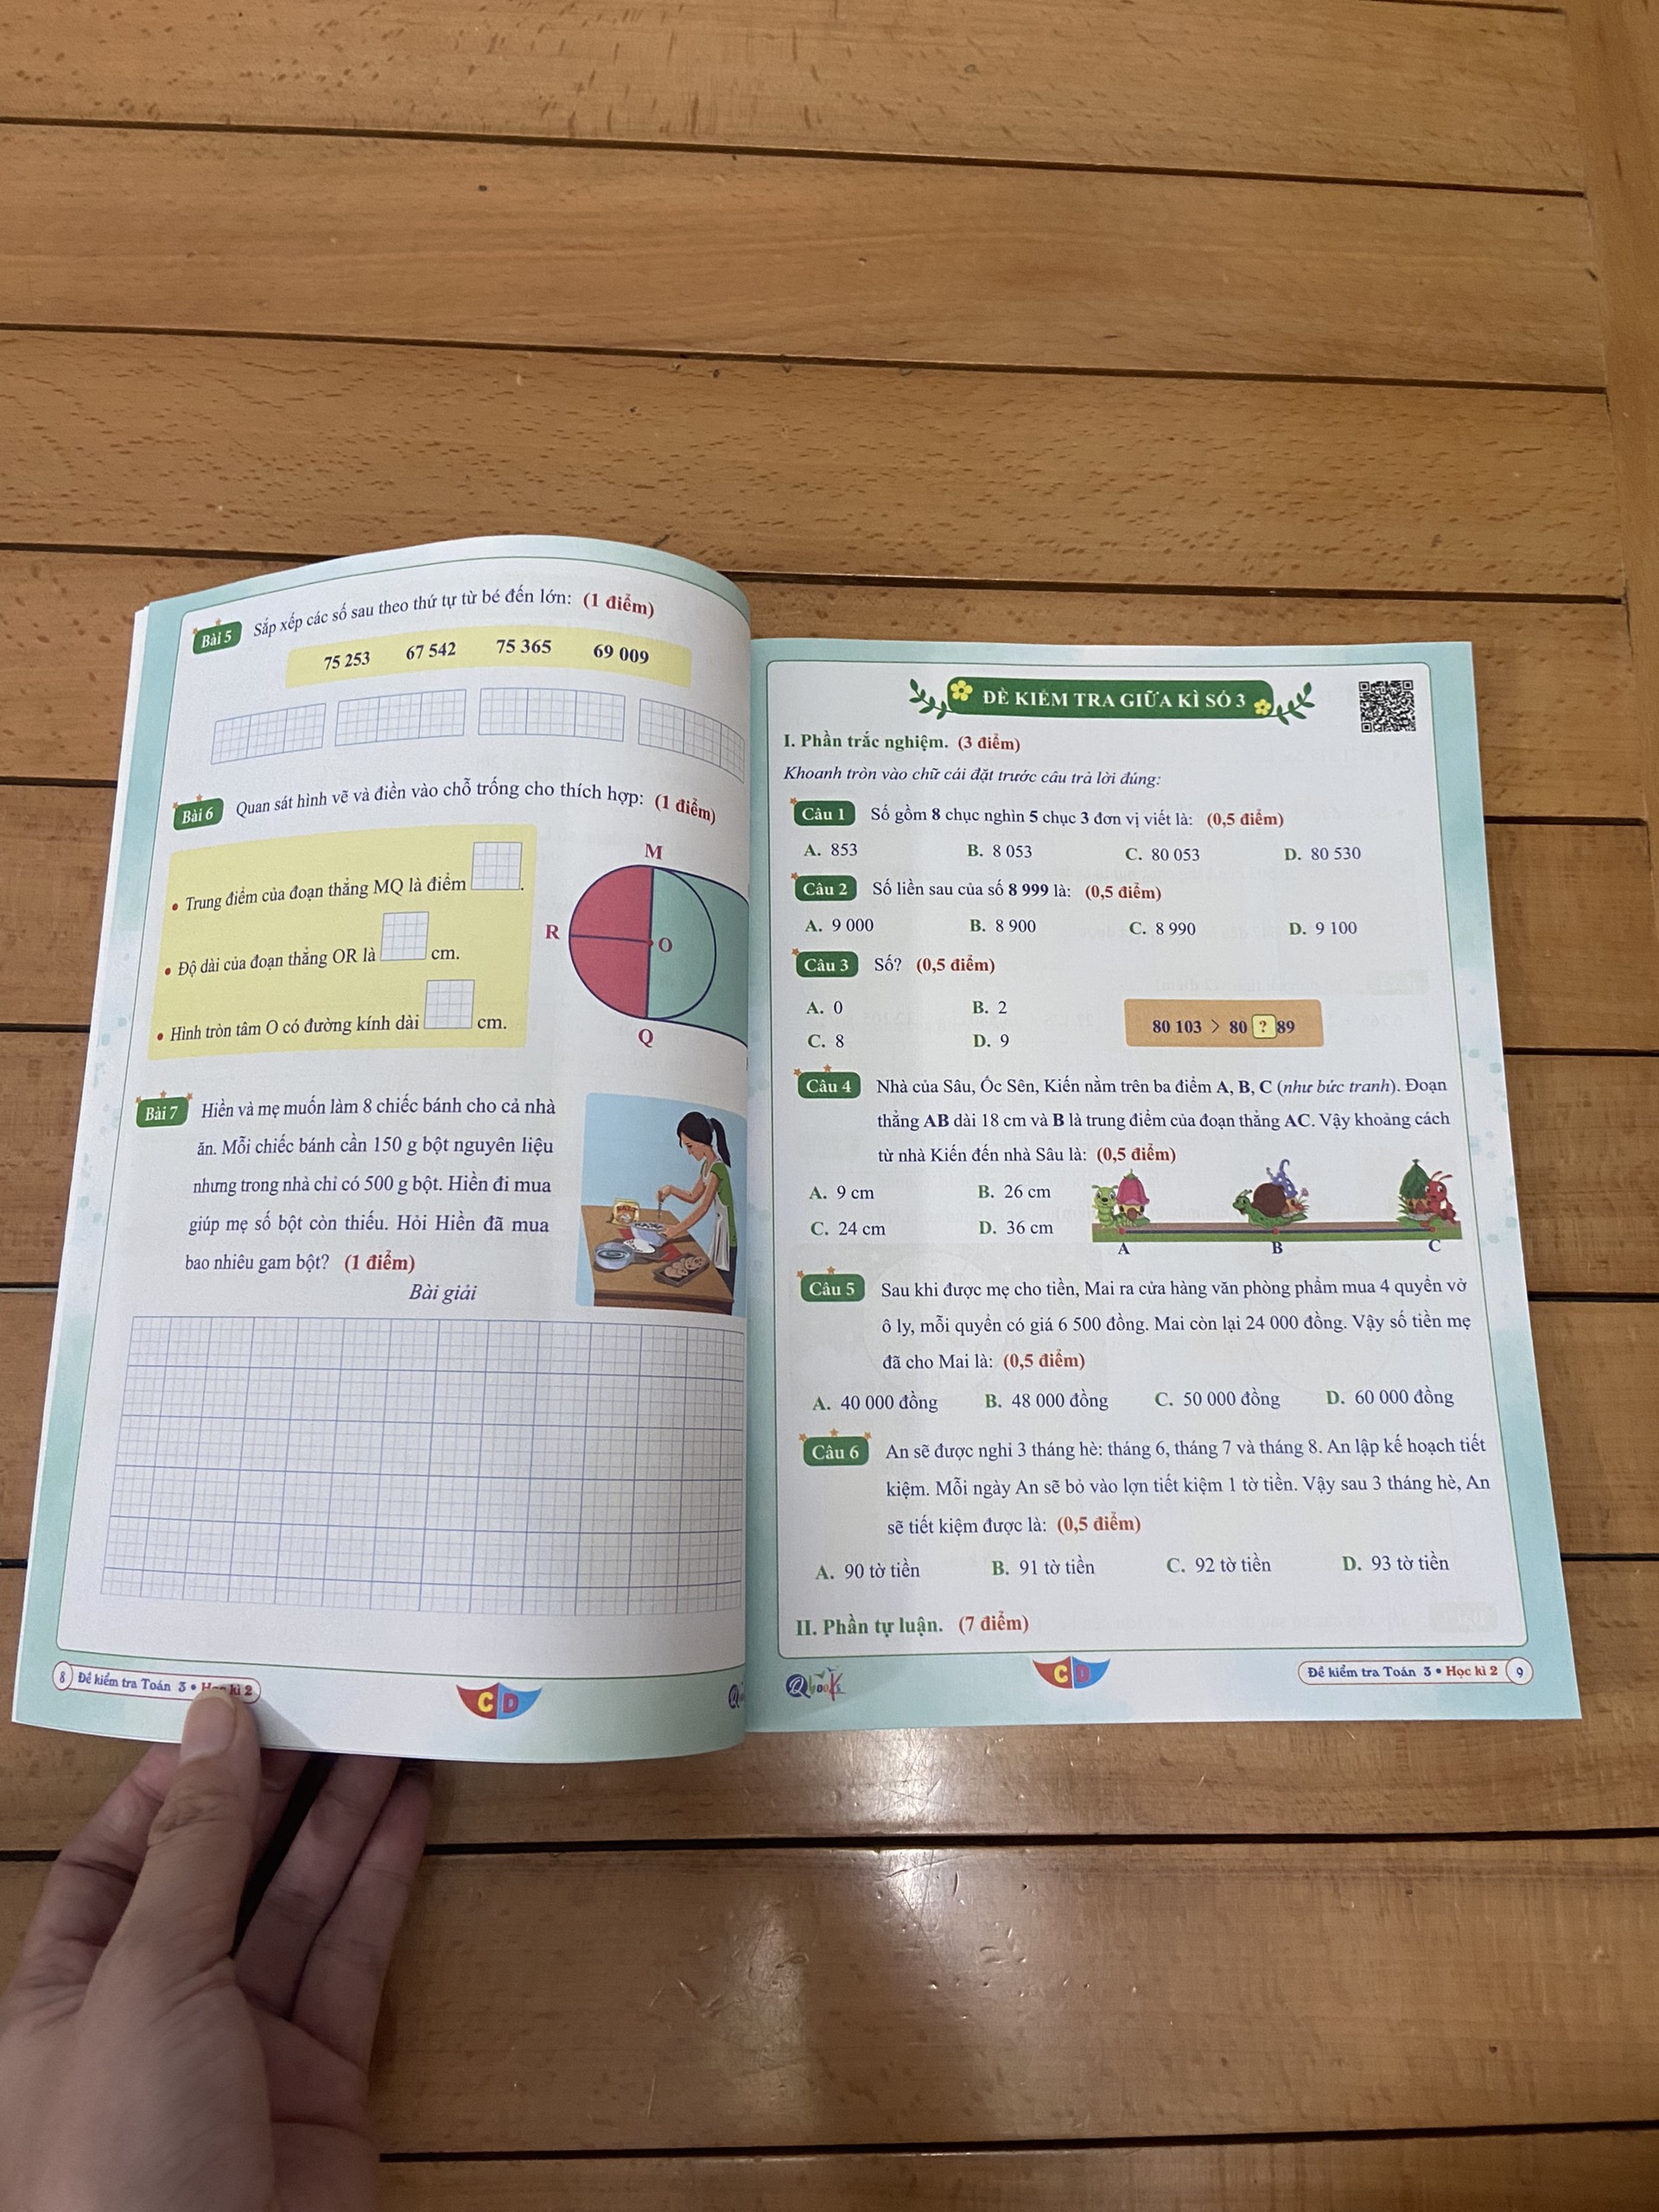 Bài 5 Sắp xếp các số sau theo thứ tự từ bé đến lớn: (1 điểm)
75 253 67 542 75 365 69 009
Bài 6 Quan sát hình vẽ và điền vào chỗ trống cho thích hợp: (1 điểm)
• Trung điểm của đoạn thẳng MQ là điểm .
• Độ dài của đoạn thẳng OR là cm.
• Hình tròn tâm O có đường kính dài cm.
M
R
O
Q
Bài 7 Hiền và mẹ muốn làm 8 chiếc bánh cho cả nhà
ăn. Mỗi chiếc bánh cần 150 g bột nguyên liệu
nhưng trong nhà chỉ có 500 g bột. Hiền đi mua
giúp mẹ số bột còn thiếu. Hỏi Hiền đã mua
bao nhiêu gam bột? (1 điểm)
Bài giải
8 Đề kiểm tra Toán 3 • Học kì 2
CD
ĐỀ KIỂM TRA GIỮA KÌ SỐ 3
I. Phần trắc nghiệm. (3 điểm)
Khoanh tròn vào chữ cái đặt trước câu trả lời đúng:
Câu 1 Số gồm 8 chục nghìn 5 chục 3 đơn vị viết là: (0,5 điểm)
A. 853 B. 8 053 C. 80 053 D. 80 530
Câu 2 Số liền sau của số 8 999 là: (0,5 điểm)
A. 9 000 B. 8 900 C. 8 990 D. 9 100
Câu 3 Số? (0,5 điểm)
A. 0 B. 2
C. 8 D. 9
80 103 > 80 ? 89
Câu 4 Nhà của Sâu, Ốc Sên, Kiến nằm trên ba điểm A, B, C (như bức tranh). Đoạn
thẳng AB dài 18 cm và B là trung điểm của đoạn thẳng AC. Vậy khoảng cách
từ nhà Kiến đến nhà Sâu là: (0,5 điểm)
A. 9 cm B. 26 cm
C. 24 cm D. 36 cm
A B C
Câu 5 Sau khi được mẹ cho tiền, Mai ra cửa hàng văn phòng phẩm mua 4 quyển vở
ô ly, mỗi quyển có giá 6 500 đồng. Mai còn lại 24 000 đồng. Vậy số tiền mẹ
đã cho Mai là: (0,5 điểm)
A. 40 000 đồng B. 48 000 đồng C. 50 000 đồng D. 60 000 đồng
Câu 6 An sẽ được nghỉ 3 tháng hè: tháng 6, tháng 7 và tháng 8. An lập kế hoạch tiết
kiệm. Mỗi ngày An sẽ bỏ vào lợn tiết kiệm 1 tờ tiền. Vậy sau 3 tháng hè, An
sẽ tiết kiệm được là: (0,5 điểm)
A. 90 tờ tiền B. 91 tờ tiền C. 92 tờ tiền D. 93 tờ tiền
II. Phần tự luận. (7 điểm)
Qbooks
CD
Đề kiểm tra Toán 3 • Học kì 2 9